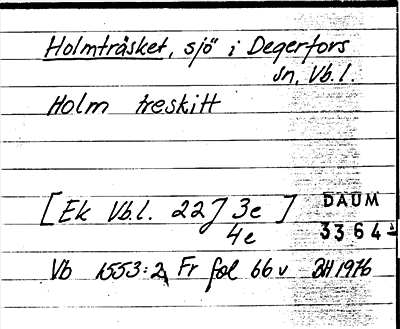 Holmträsket, sjö i Degerfors
sn, Vb.l.
Holm treskitt
[Ek Vb.l. 22J 3e ]
4e
DAUM
3364
Vb 1553:2, Fr fol 66 v BH 1976